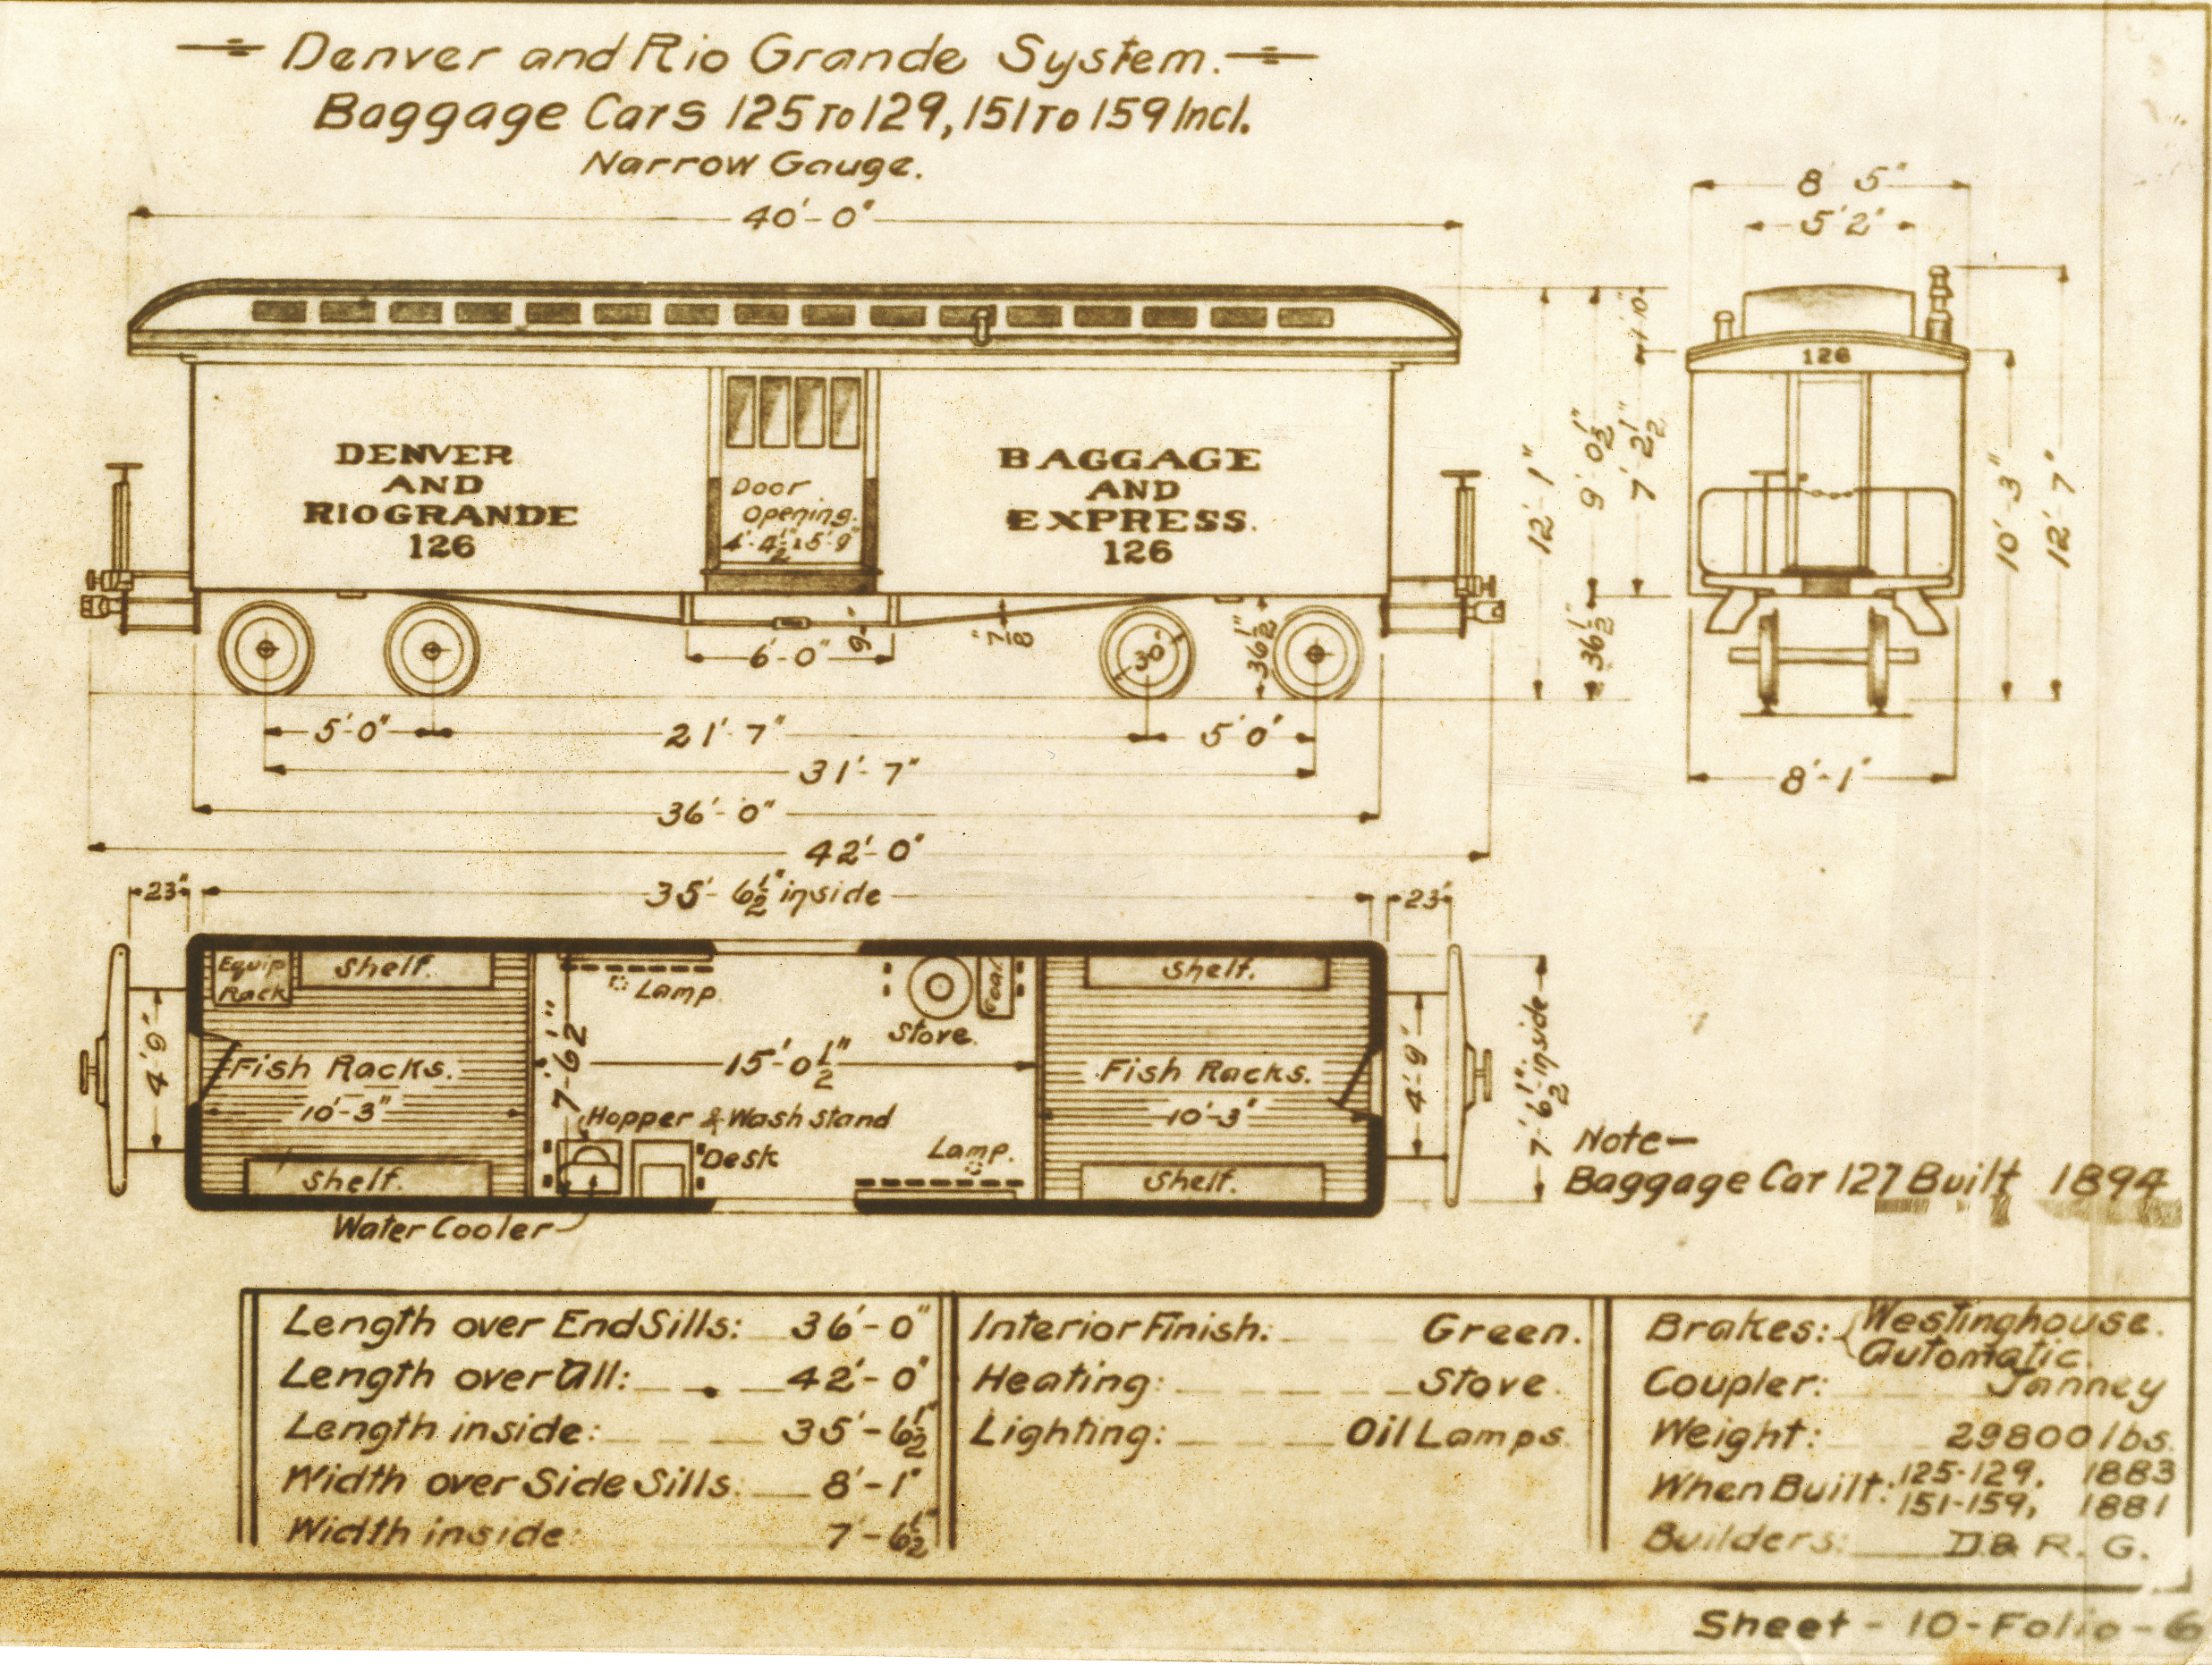 Denver and Rio Grande System.
Baggage Cars 125 To 129, 151 To 159 Incl.
Narrow Gauge.
40'-0"
8' 5"
5' 2"
1' 10"
126
DENVER
AND
RIO GRANDE
126
Door
Opening.
4'-4½" x 5'-9"
BAGGAGE
AND
EXPRESS.
126
12'-1"
9' 0½"
7' 2½"
36½"
10'-3"
12'-7"
6'-0"
9"
7/8"
30"
36½"
5'-0"
21'-7"
5'0"
31'-7"
8'-1"
36'-0"
42'-0"
23"
35'-6½" inside
23"
Equip
Rack
Shelf.
Lamp.
Stove.
Coal
Shelf.
4'-9"
Fish Racks.
10'-3"
7'-6½"
15'-0½"
Fish Racks.
10'-3"
4'-9"
7'-6½" inside
Hopper & Wash Stand
Desk
Lamp.
Shelf.
Shelf.
Water Cooler
Note-
Baggage Car 127 Built 1894
Length over End Sills: 36'-0"
Length over All: 42'-0"
Length inside: 35'-6½"
Width over Side Sills: 8'-1"
Width inside: 7'-6½"
Interior Finish: Green.
Heating: Stove.
Lighting: Oil Lamps.
Brakes: Westinghouse.
Automatic.
Coupler: Janney
Weight: 29800 lbs.
When Built: 125-129, 1883
151-159, 1881
Builders: D. & R. G.
Sheet - 10 - Folio - 6